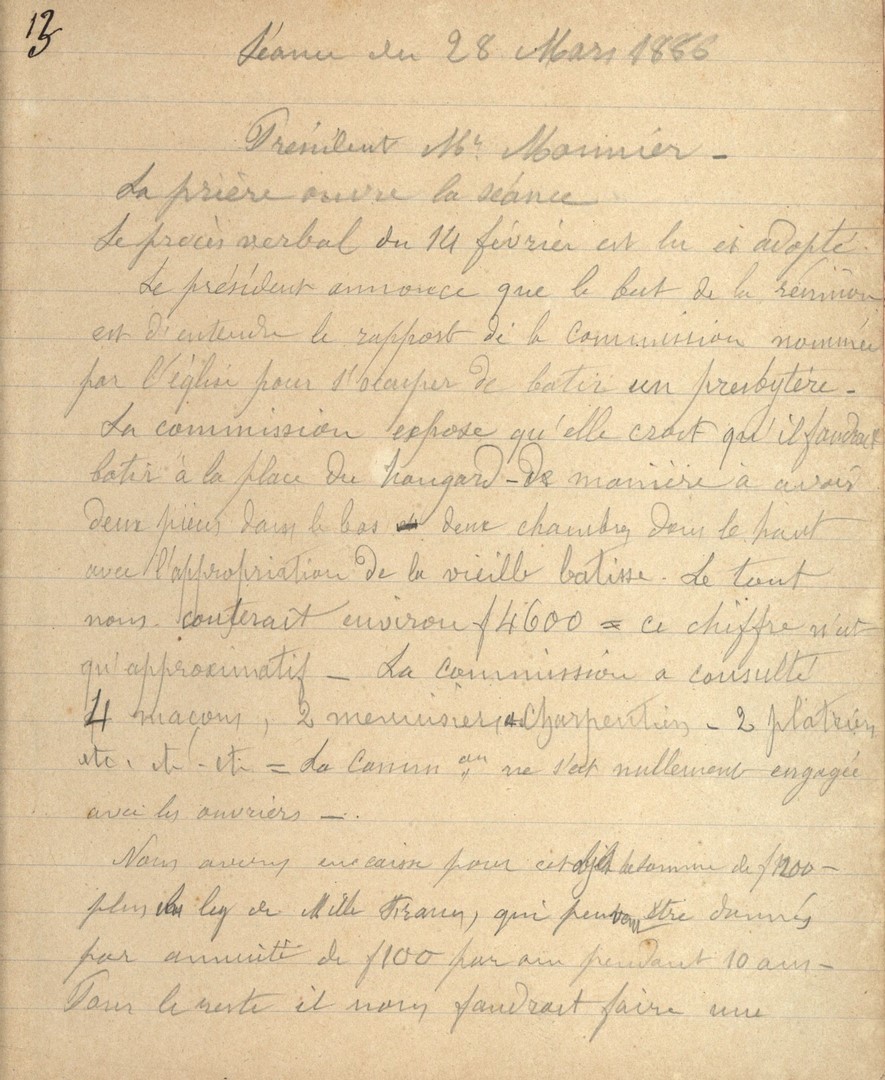 13
Séance du 28 Mars 1886
Président Mr. Monnier -
La prière ouvre la séance
Le procès verbal du 14 février est lu et adopté.
Le président annonce que le but de la réunion
est d'entendre le rapport de la commission nommée
par l'église pour s'occuper de batir un presbytère -
La commission expose qu'elle croit qu'il faudrait
batir à la place du hangard - de manière à avoir
deux pièces dans le bas et deux chambres dans le haut
avec l'appropriation de la vieille batisse. Le tout
nous couterait environ f 4600 = ce chiffre n'est
qu'approximatif - La commission a consulté
4 maçons, 2 menuisiers, Charpentiers - 2 platriers
etc. etc - etc. = La Comm on ne s'est nullement engagée
avec les ouvriers -.
Nous avons en caisse pour cet objet la somme de f 1200 -
plus le leg de Mille Francs, qui peuvent être donnés
par annuité de f 100 par an pendant 10 ans -
Pour le reste il nous faudrait faire une